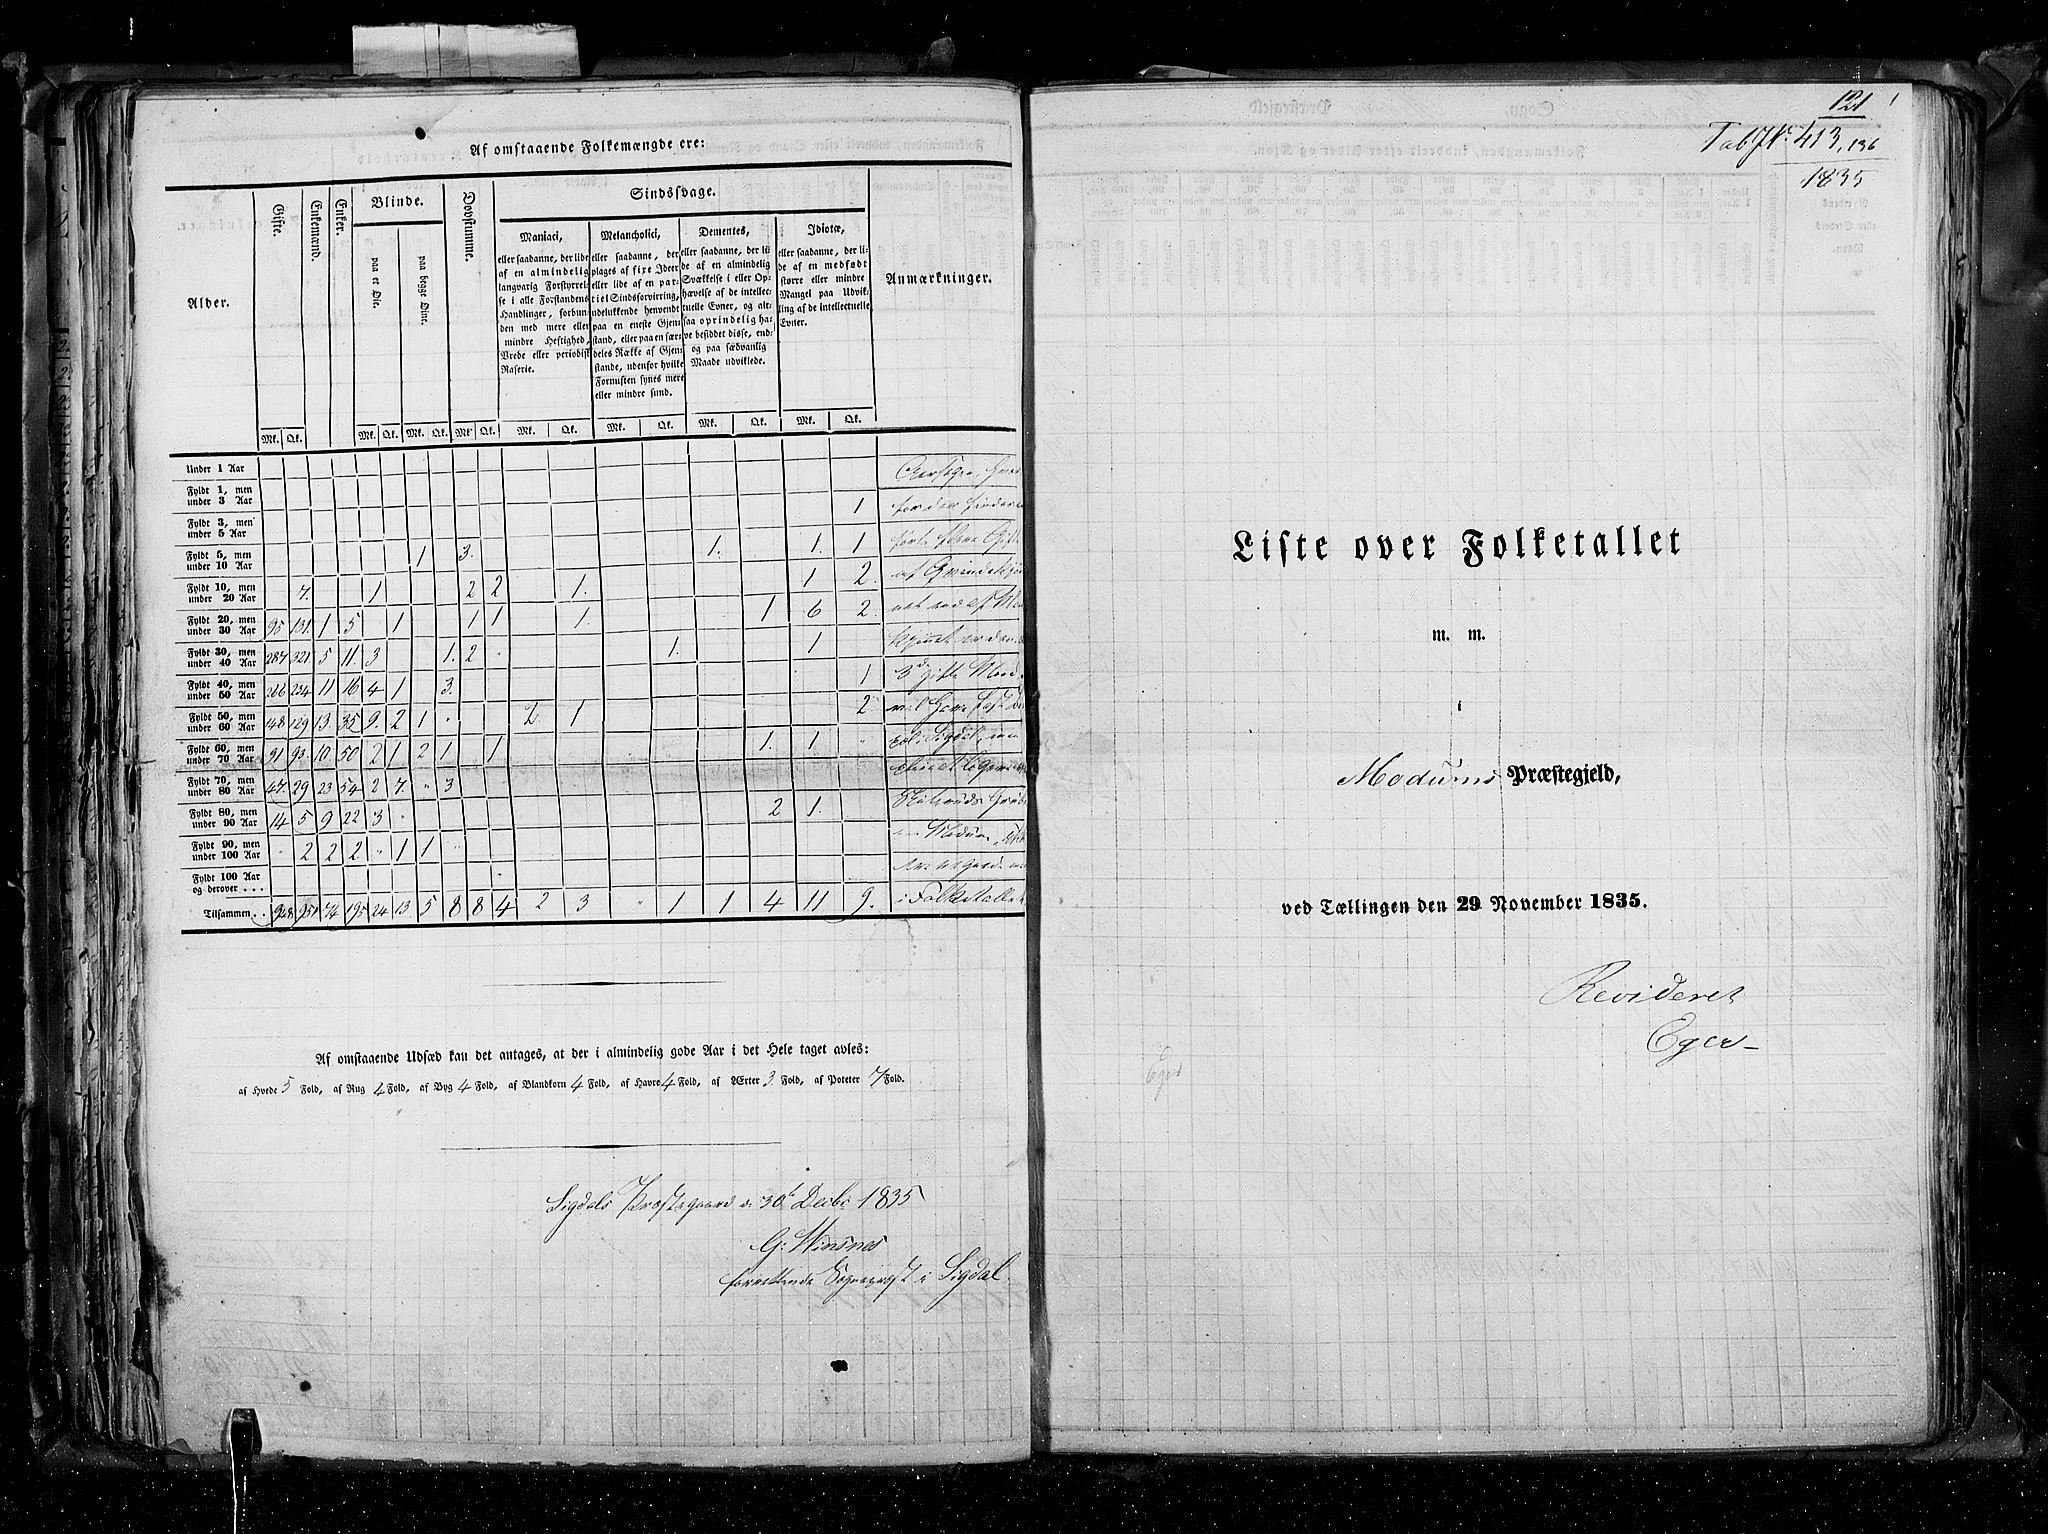 Af omstaaende Folkemængde ere:
Alder.
Gifte.
Enkemænd.
Enker.
Blinde.
paa et Øie.
paa begge Øine.
Døvstumme.
Sindssvage.
Maniaci,
eller saadanne, der lide
af en almindelig
langvarig Forstyrrelse
i alle Forstandens
Handlinger, forbun-
den med mere eller
mindre Heftighed,
Vrede eller periodisk
Raserie.
Melancholici,
eller saadanne, der
plages af fixe Ideer
eller lide af en par-
tiel Sindsforvirring,
udelukkende henvendt
paa en eneste Gjen-
stand, eller paa en sær-
deles Række af Gjen-
stande, udenfor hvilke
Fornuften synes mere
eller mindre sund.
Dementes,
eller saadanne, der li-
de af en almindelig
Svækkelse i eller Op-
hævelse af de intellec-
tuelle Evner, og alt-
saa oprindelig ha-
ve besiddet disse, end-
og paa sædvanlig
Maade udviklede.
Idiotæ,
eller saadanne, der li-
de af en medfødt
større eller mindre
Mangel paa Udvik-
ling af de intellectuelle
Evner.
Anmærkninger.
Mk. Qk. Mk. Qk. Mk. Qk. Mk Qk. Mk. Qk. Mk. Qk. Mk. Qk. Mk. Qk.
Under 1 Aar
Fyldt 1, men
under 3 Aar 1
Fyldt 3, men
under 5 Aar
Fyldt 5, men
under 10 Aar 1 3. 1. 1. 1
Fyldt 10, men
under 20 Aar 7. 1 2 2 1. 1 2.
Fyldt 20, men
under 30 Aar 95 131. 1 5 1 1 1 1. 1 6 2
Fyldt 30, men
under 40 Aar 287 321. 5 11. 3 1. 2 1. 1
Fyldt 40, men
under 50 Aar 266 234 11 16 4 1 3. 1
Fyldt 50, men
under 60 Aar 148 129 13. 35 9. 2 1 2 1 2
Fyldt 60, men
under 70 Aar 91 93. 10 50 2 1 2 1 1 1. 1
Fyldt 70, men
under 80 Aar 47. 29 23 54 2 7. 3
Fyldt 80, men
under 90 Aar 14 5 9 22 3 2 1.
Fyldt 90, men
under 100 Aar 2 2 2 1 1
Fyldt 100 Aar
og derover . . .
Tilsammen . . 948 951 74 195 24 13 5 8 8 4 2 3 1 1 4 11 9.
Af omstaaende Udsæd kan det antages, at der i almindelig gode Aar i det Hele taget avles:
af Hvede 5 Fold, af Rug 4 Fold, af Byg 4 Fold, af Blandkorn 4 Fold, af Havre 4 Fold, af Ærter 3. Fold, af Poteter 7 Fold.
Sigdals Præstegaard d. 30t Decbr 1835
G: Winsnes
forrettende Sogneprest i Sigdal.
121
Tab. No. 413, 136
1835
Liste over Folketallet
m. m.
i
Modums Præstegjeld,
ved Tællingen den 29 November 1835.
Revideret
Eger
Eger